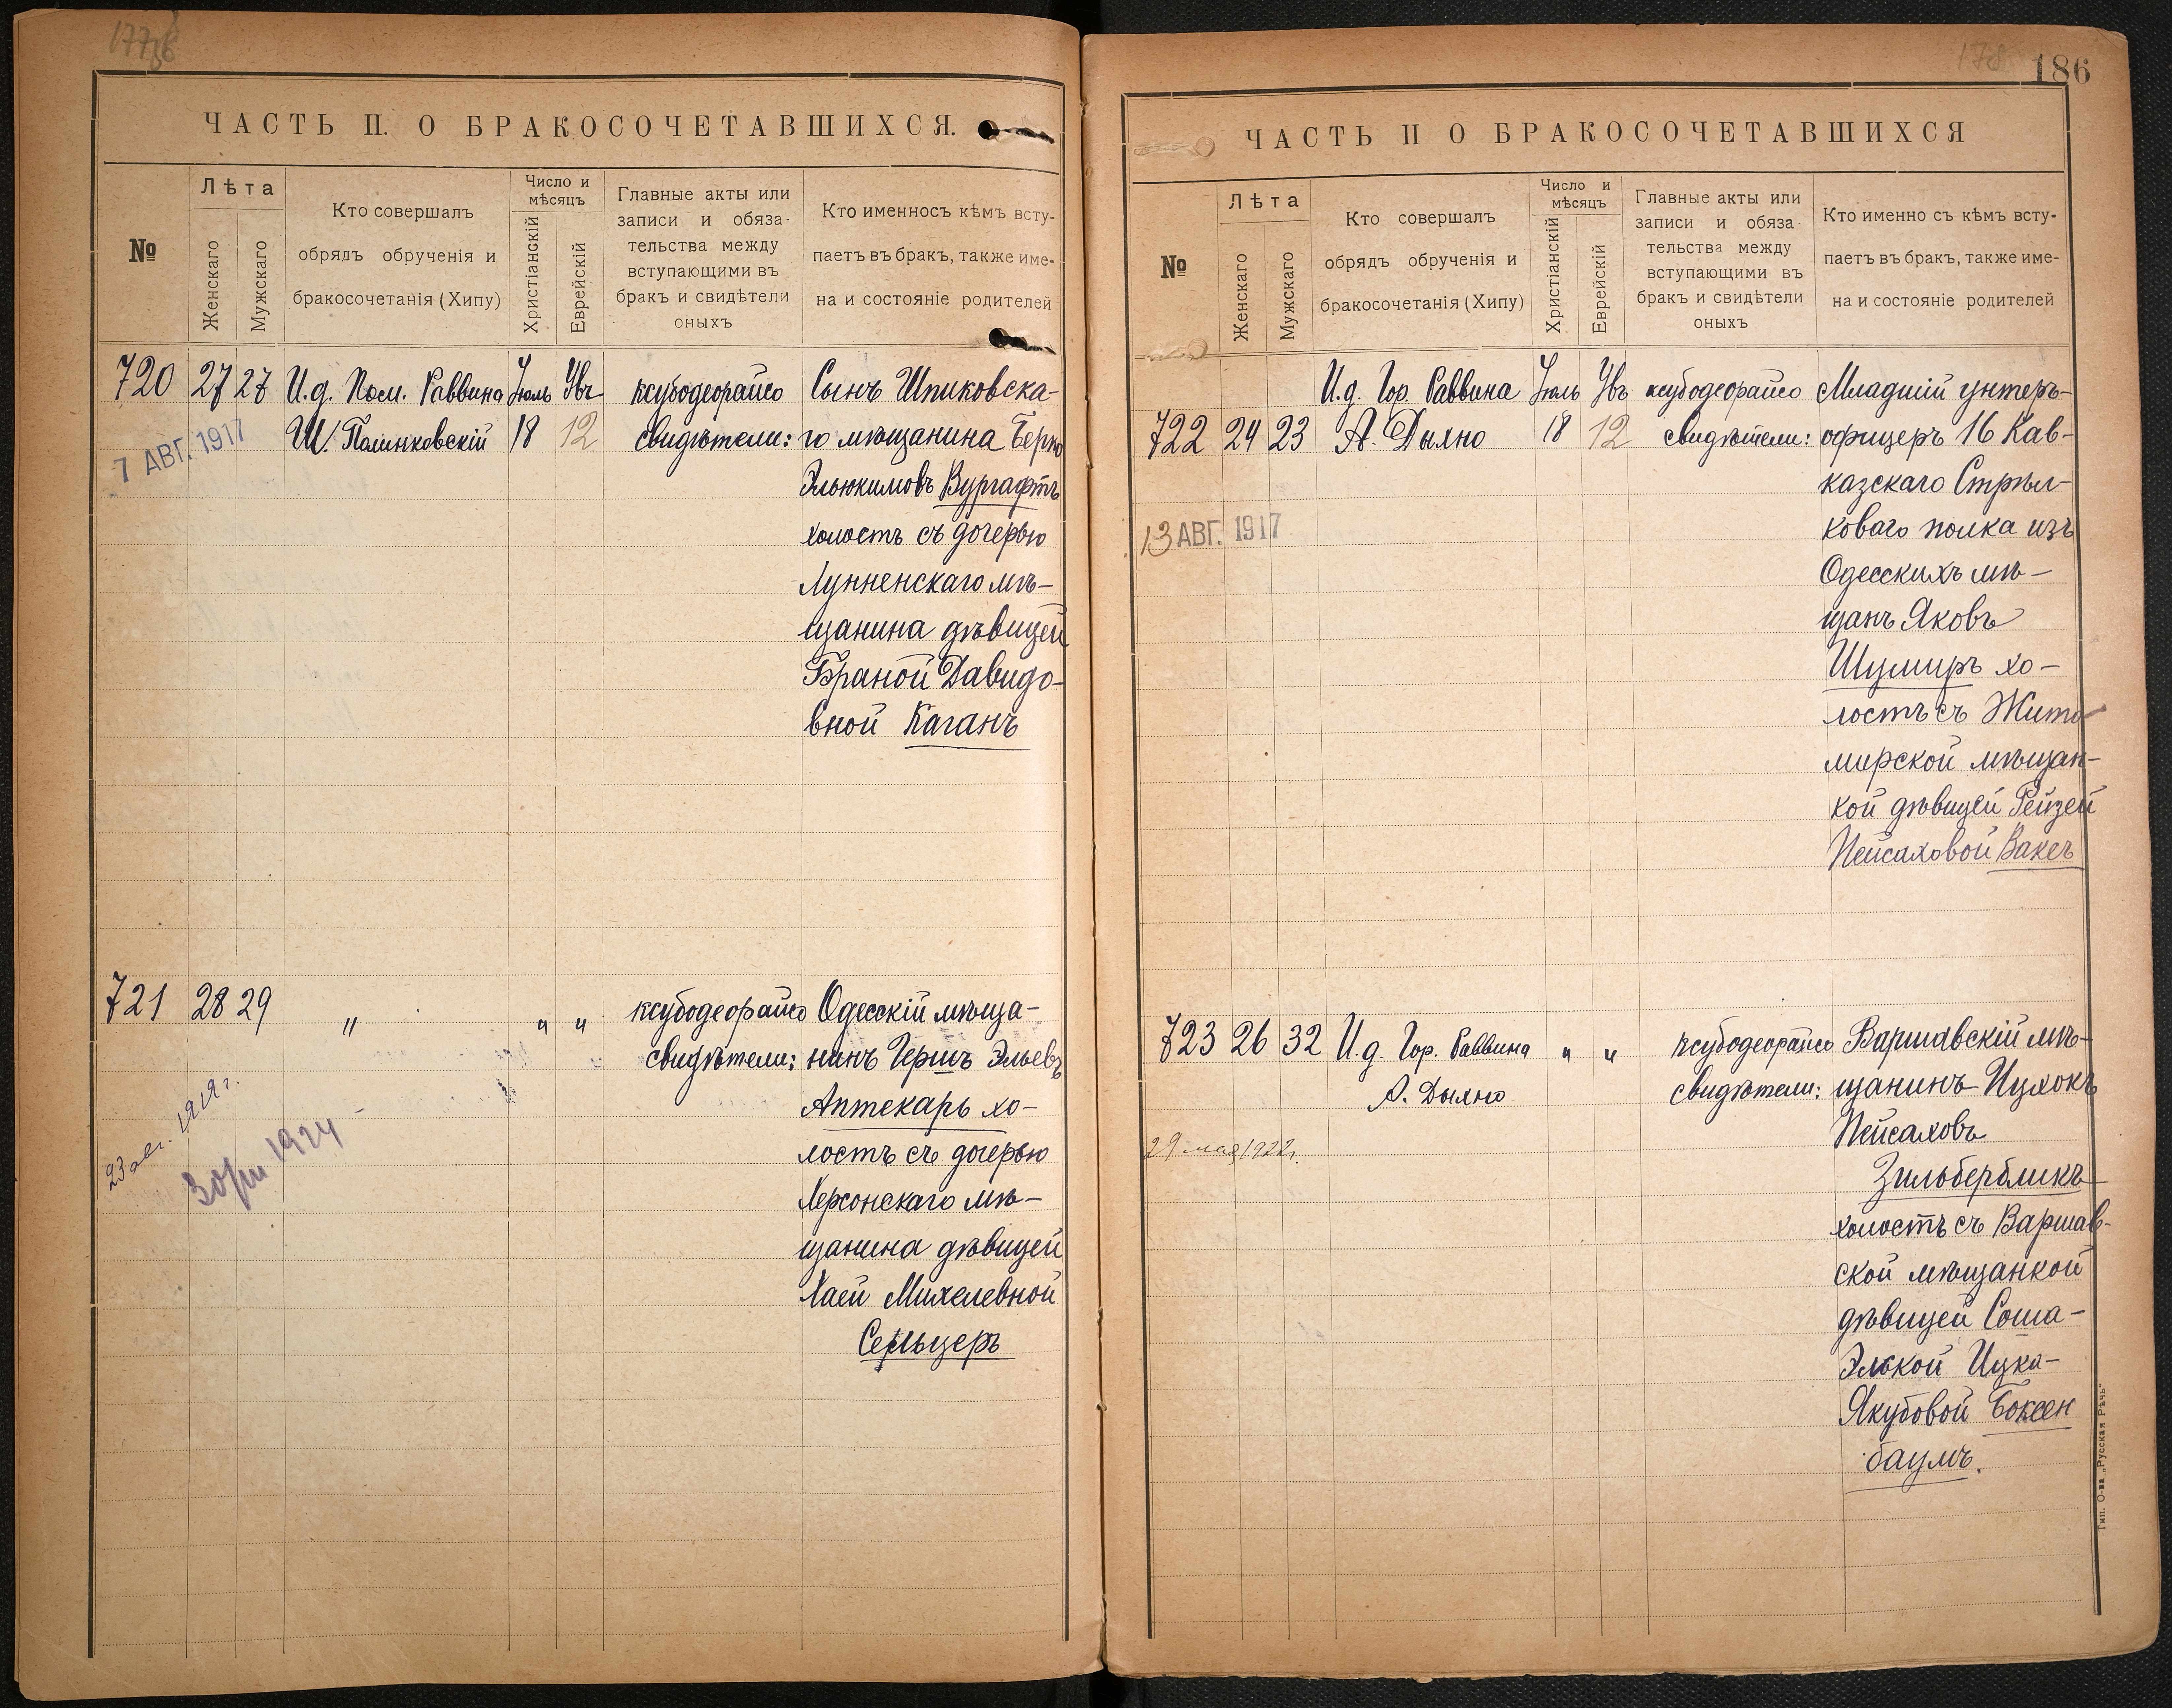 177об
ЧАСТЬ II. О БРАКОСОЧЕТАВШИХСЯ.
№
Лѣта
Женскаго
Мужскаго
Кто совершалъ
обрядъ обрученія и
бракосочетанія (Хипу)
Число и
мѣсяцъ
Христіанскій
Еврейскій
Главные акты или
записи и обяза-
тельства между
вступающими въ
бракъ и свидѣтели
оныхъ
Кто именносъ кѣмъ всту-
паетъ въ бракъ, также име-
на и состояніе родителей
720 27 27 И.д. Пом. Раввина Іюль Увъ ксубодеорайсо Сынъ Шпиковска-
Ш. Полинковскій 18 12 свидѣтели: го мѣщанина Берко
7 АВГ. 1917
Эльюкимовъ Вургафтъ
холостъ съ дочерью
Лунненскаго мѣ-
щанина дѣвицей
Браной Давидо-
вной Каганъ
721 28 29 " " " ксубодеорайсо Одесскій мѣща-
свидѣтели: нинъ Гершъ Эльевъ
Аптекарь хо-
лостъ съ дочерью
Херсонскаго мѣ-
щанина дѣвицей
Хаей Михелевной
Сельцеръ
23 авг. 1919 г.
1924
178
186
ЧАСТЬ II О БРАКОСОЧЕТАВШИХСЯ
№
Лѣта
Женскаго
Мужскаго
Кто совершалъ
обрядъ обрученія и
бракосочетанія (Хипу)
Число и
мѣсяцъ
Христіанскій
Еврейскій
Главные акты или
записи и обяза
тельства между
вступающими въ
бракъ и свидѣтели
оныхъ
Кто именно съ кѣмъ всту-
паетъ въ бракъ, также име-
на и состояніе родителей
И.д. Гор. Раввина Іюль Увъ ксубодеорайсо Младшій унтеръ-
722 24 23 А. Дыхно 18 12 свидѣтели: офицеръ 16 Кав-
казскаго Стрѣл-
13 АВГ. 1917
коваго полка изъ
Одесскихъ мѣ-
щанъ Яковъ
Шумиръ хо-
лостъ съ Жито
мирской мѣщан-
кой дѣвицей Рейзей
Пейсаховой Вакеъ
723 26 32 И.д. Гор. Раввина " " ксубодеорайсо Варшавскій мѣ-
А. Дыхно свидѣтели: щанинъ Ицхокъ
29 мая 1922 г.
Пейсаховъ
Зильбербликъ
холостъ съ Варшав-
ской мѣщанкой
дѣвицей Соша-
Элькой Ицка-
Якубовой Боксен
баумъ.
Тип. О-ва „Русская Рѣчь"